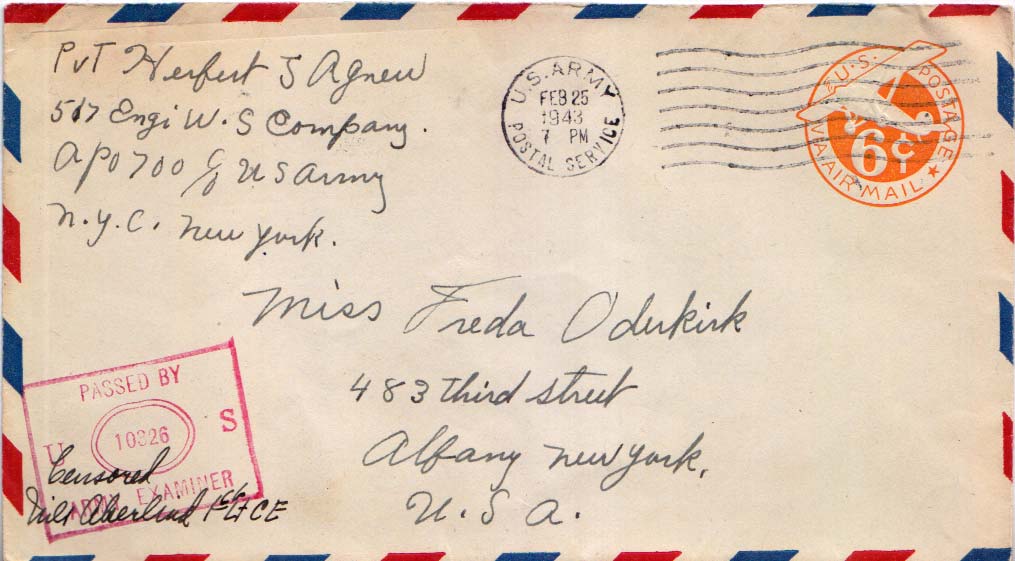 Pvt Herbert S Agnew
517 Engi W. S Company.
APO 700 c/o U S army
n.y.c. new york.
U.S. ARMY
POSTAL SERVICE
FEB 25
1943
7 PM
U.S. POSTAGE
6¢
VIA AIR MAIL
Miss Freda Oderkirk
483 third street
Albany new york.
U. S a.
PASSED BY
U 10326 S
ARMY EXAMINER
Censored
1st Lt CE